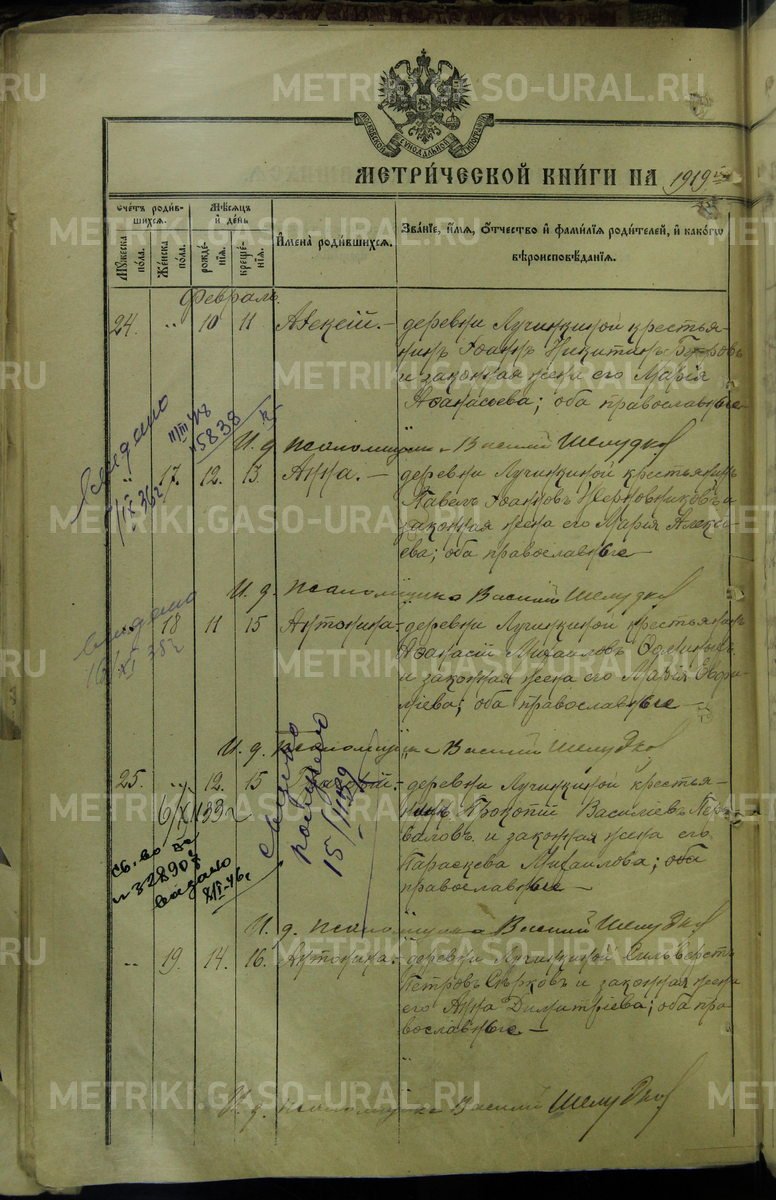 МЕТРИ́ЧЕСКОЙ КНИ́ГИ НА 1919 г.
Сче́тъ роди́в-
шихся.
Му́жеска по́ла.
Же́нска по́ла.
Мѣ́сяцъ и де́нь
рожде́нїя.
креще́нїя.
И҆мена̀ роди́вшихся.
Зва́нїе, и҆́мя, ѻ҆́тчество и҆ фами́лїя роди́телей, и҆ како́гѡ
вѣроисповѣ́данїя.
Февраль.
24. " 10 11 Алексій. — деревни Лучинкиной крестья-
нинъ Іоаннъ Никитинъ
и законная жена его Марія
Аѳанасьева; оба православные
И. д. псаломщика Василій Шелудков
" 17. 12. 13. Анна. — деревни Лучинкиной крестьянинъ
Павелъ Іоанновъ и
законная жена его Марія Алексѣ-
ева; оба православные —
И. д. псаломщика Василий Шелудков
18 11 15 Антонина. — деревни Лучинкиной крестьянинъ
Аѳанасій Михаиловъ
и законная жена его Марія Евѳи-
міева; оба православные —
И. д. псаломщика Василий Шелудков
25. " 12. 15 деревни Лучинкиной крестья-
нинъ Прокопій Васильевъ Пер-
валовъ и законная жена его
Параскева Михаилова; оба
православные —
И. д. псаломщика Василий Шелудков
" 19. 14. 16. Антонина. — деревни Лучинкиной Сильверстъ
Петровъ Сѣрковъ и законная жена
его Анна Димитріева; оба пра-
вославные —
И. д. псаломщика Василий Шелудков
выдано
1/IX 36г
III 48
5838
выдано
16/XI 35г
6/XI 33 г
св-во
№ 328908
выдано
8/I-46г
15/II 39
METRIKI.GASO-URAL.RU